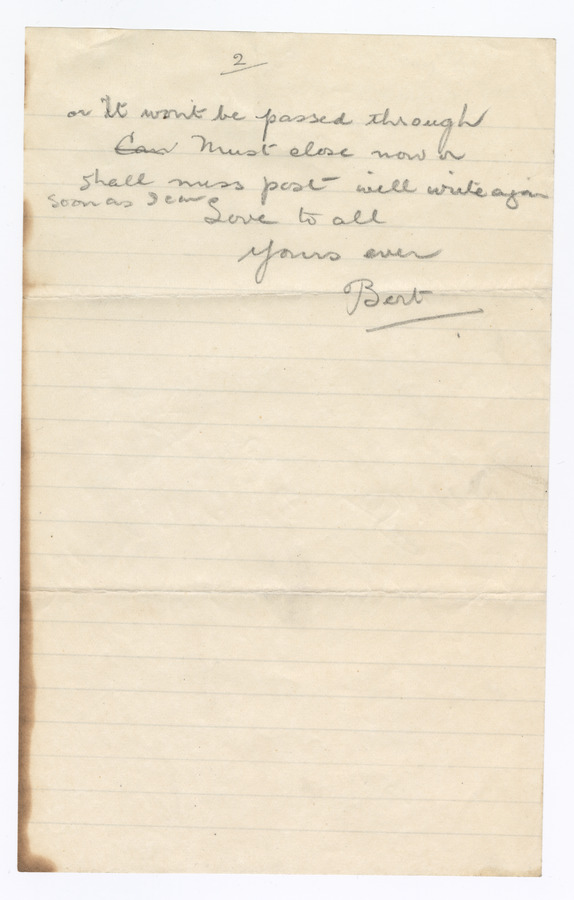 2
or It won't be passed through
Can Must close now or
shall miss post will write again
soon as I can
Love to all
Yours ever
Bert